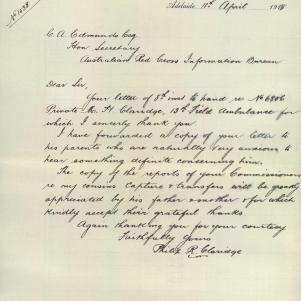 No 1638
Adelaide 11th April 1918
C. A. Edmunds Esq
Hon Secretary
Australian Red Cross Information Bureau
Dear Sir,
Your letter of 9th inst to hand re No 6806
Private M. H. Claridge, 13th Field Ambulance for
which I sincerely thank you
I have forwarded a copy of your letter to
his parents who are naturally very anxious to
hear something definite concerning him.
The copy of the reports of your Commissioners
re my cousins Capture & transfers will be greatly
appreciated by his father & mother & for which
kindly accept their grateful thanks.
Again thanking you for your courtesy
Faithfully Yours
Philip R. Claridge